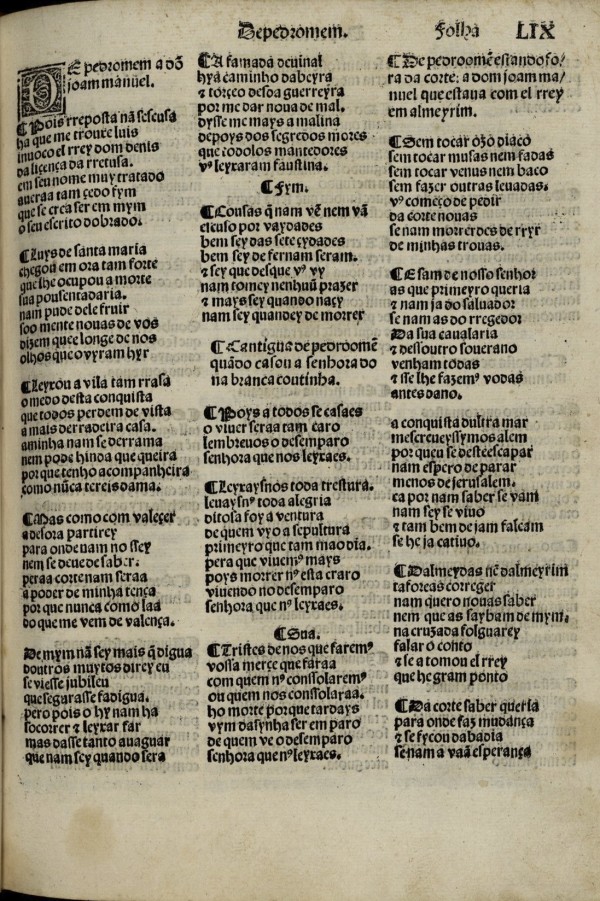 Depedromem. Folha LIX
De pedromem a dõ
joam manuel.
¶Pois rreposta nã sescusa
ha que me trouxe luis
inuoco el rrey dom denis
da liçença da rretusa.
em seu nome muy tratado
aueraa tam çedo fym
que se crea ser em mym
o seu escrito dobrado.
¶Luys de santa maria
chegou em ora tam forte
que lhe ocupou a morte
sua pousentadaria.
nam pude dele fruir
soo mente nouas de vos
dizem que e longe de nos
olhos que o vyram hyr
¶Leyxou a vila tam rrasa
o medo desta conquista
que todos perdem de vista
a mais derradeira casa.
aminha nam se derrama
nem pode hinda que queira
por que tenho acompanheira
como nũca tereis dama.
¶Mas como com valeçer
a desora partirey
para onde uam no ssey
nem se deue de saber.
peraa corte nam seraa
a poder de minha tença
por que nunca como laa
do que me vem de valença.
De mym nã sey mais q̃ digua
doutros muytos direy eu
se viesse jubileu
que segurasse fadigua.
pero pois o hy nam ha
socorrer & leyxar far
mas dasse tanto auaguar
que nam sey quando sera
¶A famada deuinal
hyã caminho dabeyra
& torçeo desoa guerreyra
por me dar noua de mal.
dysse me mays a malina
depoys dos segredos mores
que todolos mantedores
vˢ leyxaram faustina.
¶Fym.
¶Cousas q̃ nam vẽ nem vã
escuso por vaydades
bem sey das sete çydades
bem sey de fernam seram.
& sey que desque vˢ vy
nam tomey nenhuũ prazer
& mays sey quando naçy
nam sey quandey de morrer
¶Cantigua de pedroomẽ
quãdo casou a senhora do
na branca coutinha.
¶Poys a todos se casaes
o viuer seraa tam caro
lembreuos o desemparo
senhora que nos leyxaes.
¶Leyxaysnos toda trestura.
leuaysnˢ toda alegria
ditosa foy a ventura
de quem vyo a sepultura
primeyro que tam mao dia.
pera que viuemˢ mays
poys morrer nˢ esta craro
viuendo no desemparo
senhora que nˢ leyxaes.
¶Sua.
¶Tristes de nos que faremˢ
vossa merçe que faraa
com quem nˢ conssolaremˢ
ou quem nos conssolaraa.
ho morte porque tardays
vym dasynha ser em paro
de quem ve o desemparo
senhora que nˢ leyxaes.
¶De pedroomẽ estando fo/
ra da corte: a dom joam ma/
nuel que estaua com el rrey
em almeyrim.
¶Sem tocar
sem tocar musas nem fadas
sem tocar venus nem baco
sem fazer outras leuadas.
vˢ começo de pedir
da corte nouas
se nam morterdes de rryr
de minhas trouas.
¶E sam de nosso senhor
as que primeyro queria
& nam ja do saluador
se nam as do rregedor
Da sua caualaria
& dessoutro souerano
venham todas
& sse lhe fazemˢ vodas
antes dano.
a conquista dultra mar
mescreueyssymos alem
por que u se desteescapar
nam espero de parar
menos de jerusalem.
ca por nam saber se vam
nam sey se viuo
& tam bem de jam faleam
se he ja catiuo.
¶Dalmeydas nẽ dalmeyrim
taforeas correger
nam quero nouas saber
nem que as saybam de mym.
na cruzada folguarey
falar o conto
& se a tomou el rrey
que he gram ponto
¶Da corte saber queria
para onde faz mudança
& se fycou da badia
se nam a vaã esperança